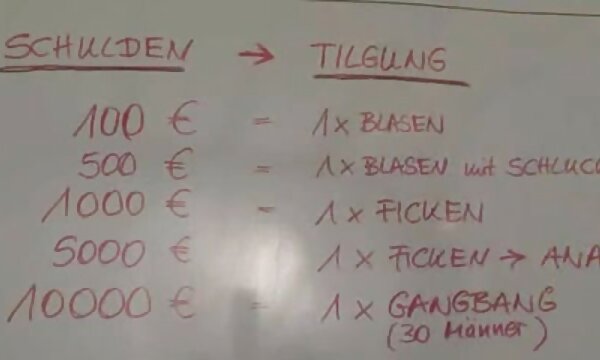 SCHULDEN → TILGUNG
100 € = 1 x BLASEN
500 € = 1 x BLASEN mit SCHLUC
1000 € = 1 x FICKEN
5000 € 1 x FICKEN → ANA
10000 € = 1 x GANGBANG
(30 Männer)